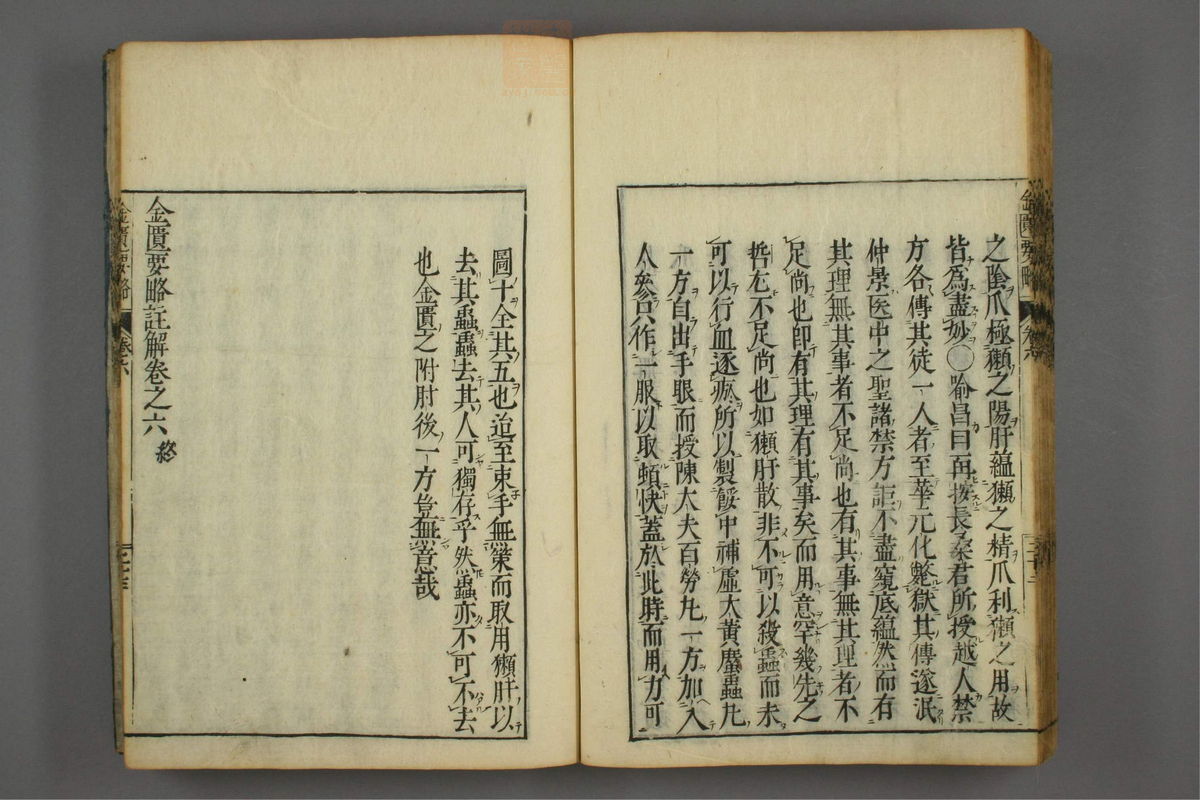 之陰爪極獺之陽肝蘊獺之精爪利獺之用故
皆為盡妙〇喻昌曰再按長桑君所授越人禁
方各傳其徒一人者至華元化斃獄其傳遂泯
仲景医中之聖諸禁方詎不盡窺底蘊然而有
其理無其事者不足尚也有其事無其理者不
足尚也即有其理有其事矣而用意罕幾先之
哲尤不足尚也如獺肝散非不可以殺蟲而未
可以行血逐瘀所以製餒中補虛大黃䗪蟲丸
一方自出手眼而授陳大夫百勞丸一方加入
人參只作一服以取頓快蓋於此時而用力可
圖十全其五也迨至束手無策而取用獺肝以
去其蟲蟲去其人可獨存乎然蟲亦不可不去
也金匱之附肘後一方豈無意哉
金匱要略註解卷之六 終
金匱要略
卷六